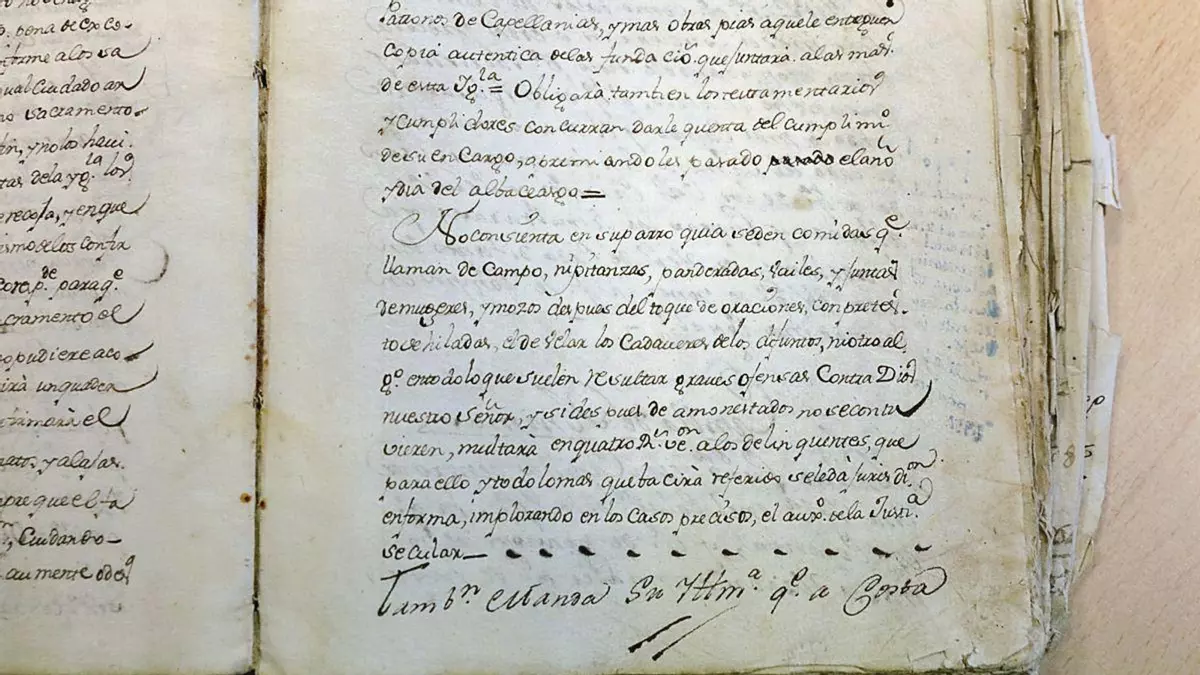 o. pena de exco-
tume alos sa
qual Cuidado an
no sacramento.
fin, y no lo haci.
tas dela yg.ª los.
recosa, y en que
ismo de los confir
core p.de para q.e
cramento el
o pudiere aco-
irà un quader
firmarà el
nato, y alajas.
pre que el fa
, Cuidando-
aumente o de
Patronos de Capellanias, y mas obras pias aque le entreguen
Copia autentica delas funda ciō. que juntarà alas mas.
de esta Ygla = Obligarà, tambien los testamentarios
y Cumplidores concurran darle quenta del Cumplim.o
de su en Cargo, apremiandoles pasado pasado el año
y dia del albaceazgo =
No consienta en su parroquia se den comidas q.e
llaman de Campo, ni pitanzas, panderadas, vailes, y juntas
de mugeres, y mozos despues del toque de oraciones, con pretes-
to de hiladas, el de velar los Cadaveres de los difuntos, ni otro al-
g.o en todo lo que suelen resultar graves ofensas Contra Dios
nuestro Señor, y si despues de amonestados no se contu
vieren, multarà en quatro R.s v.on a los delinquentes, que
para ello y todo lo mas que ba cirà referido se le dà juris di.on
en forma, implorando en los Casos precisos, el aux.o de la Justi.a
Secular —
Tamb.n Manda Su Ill.ma q.e a Costa